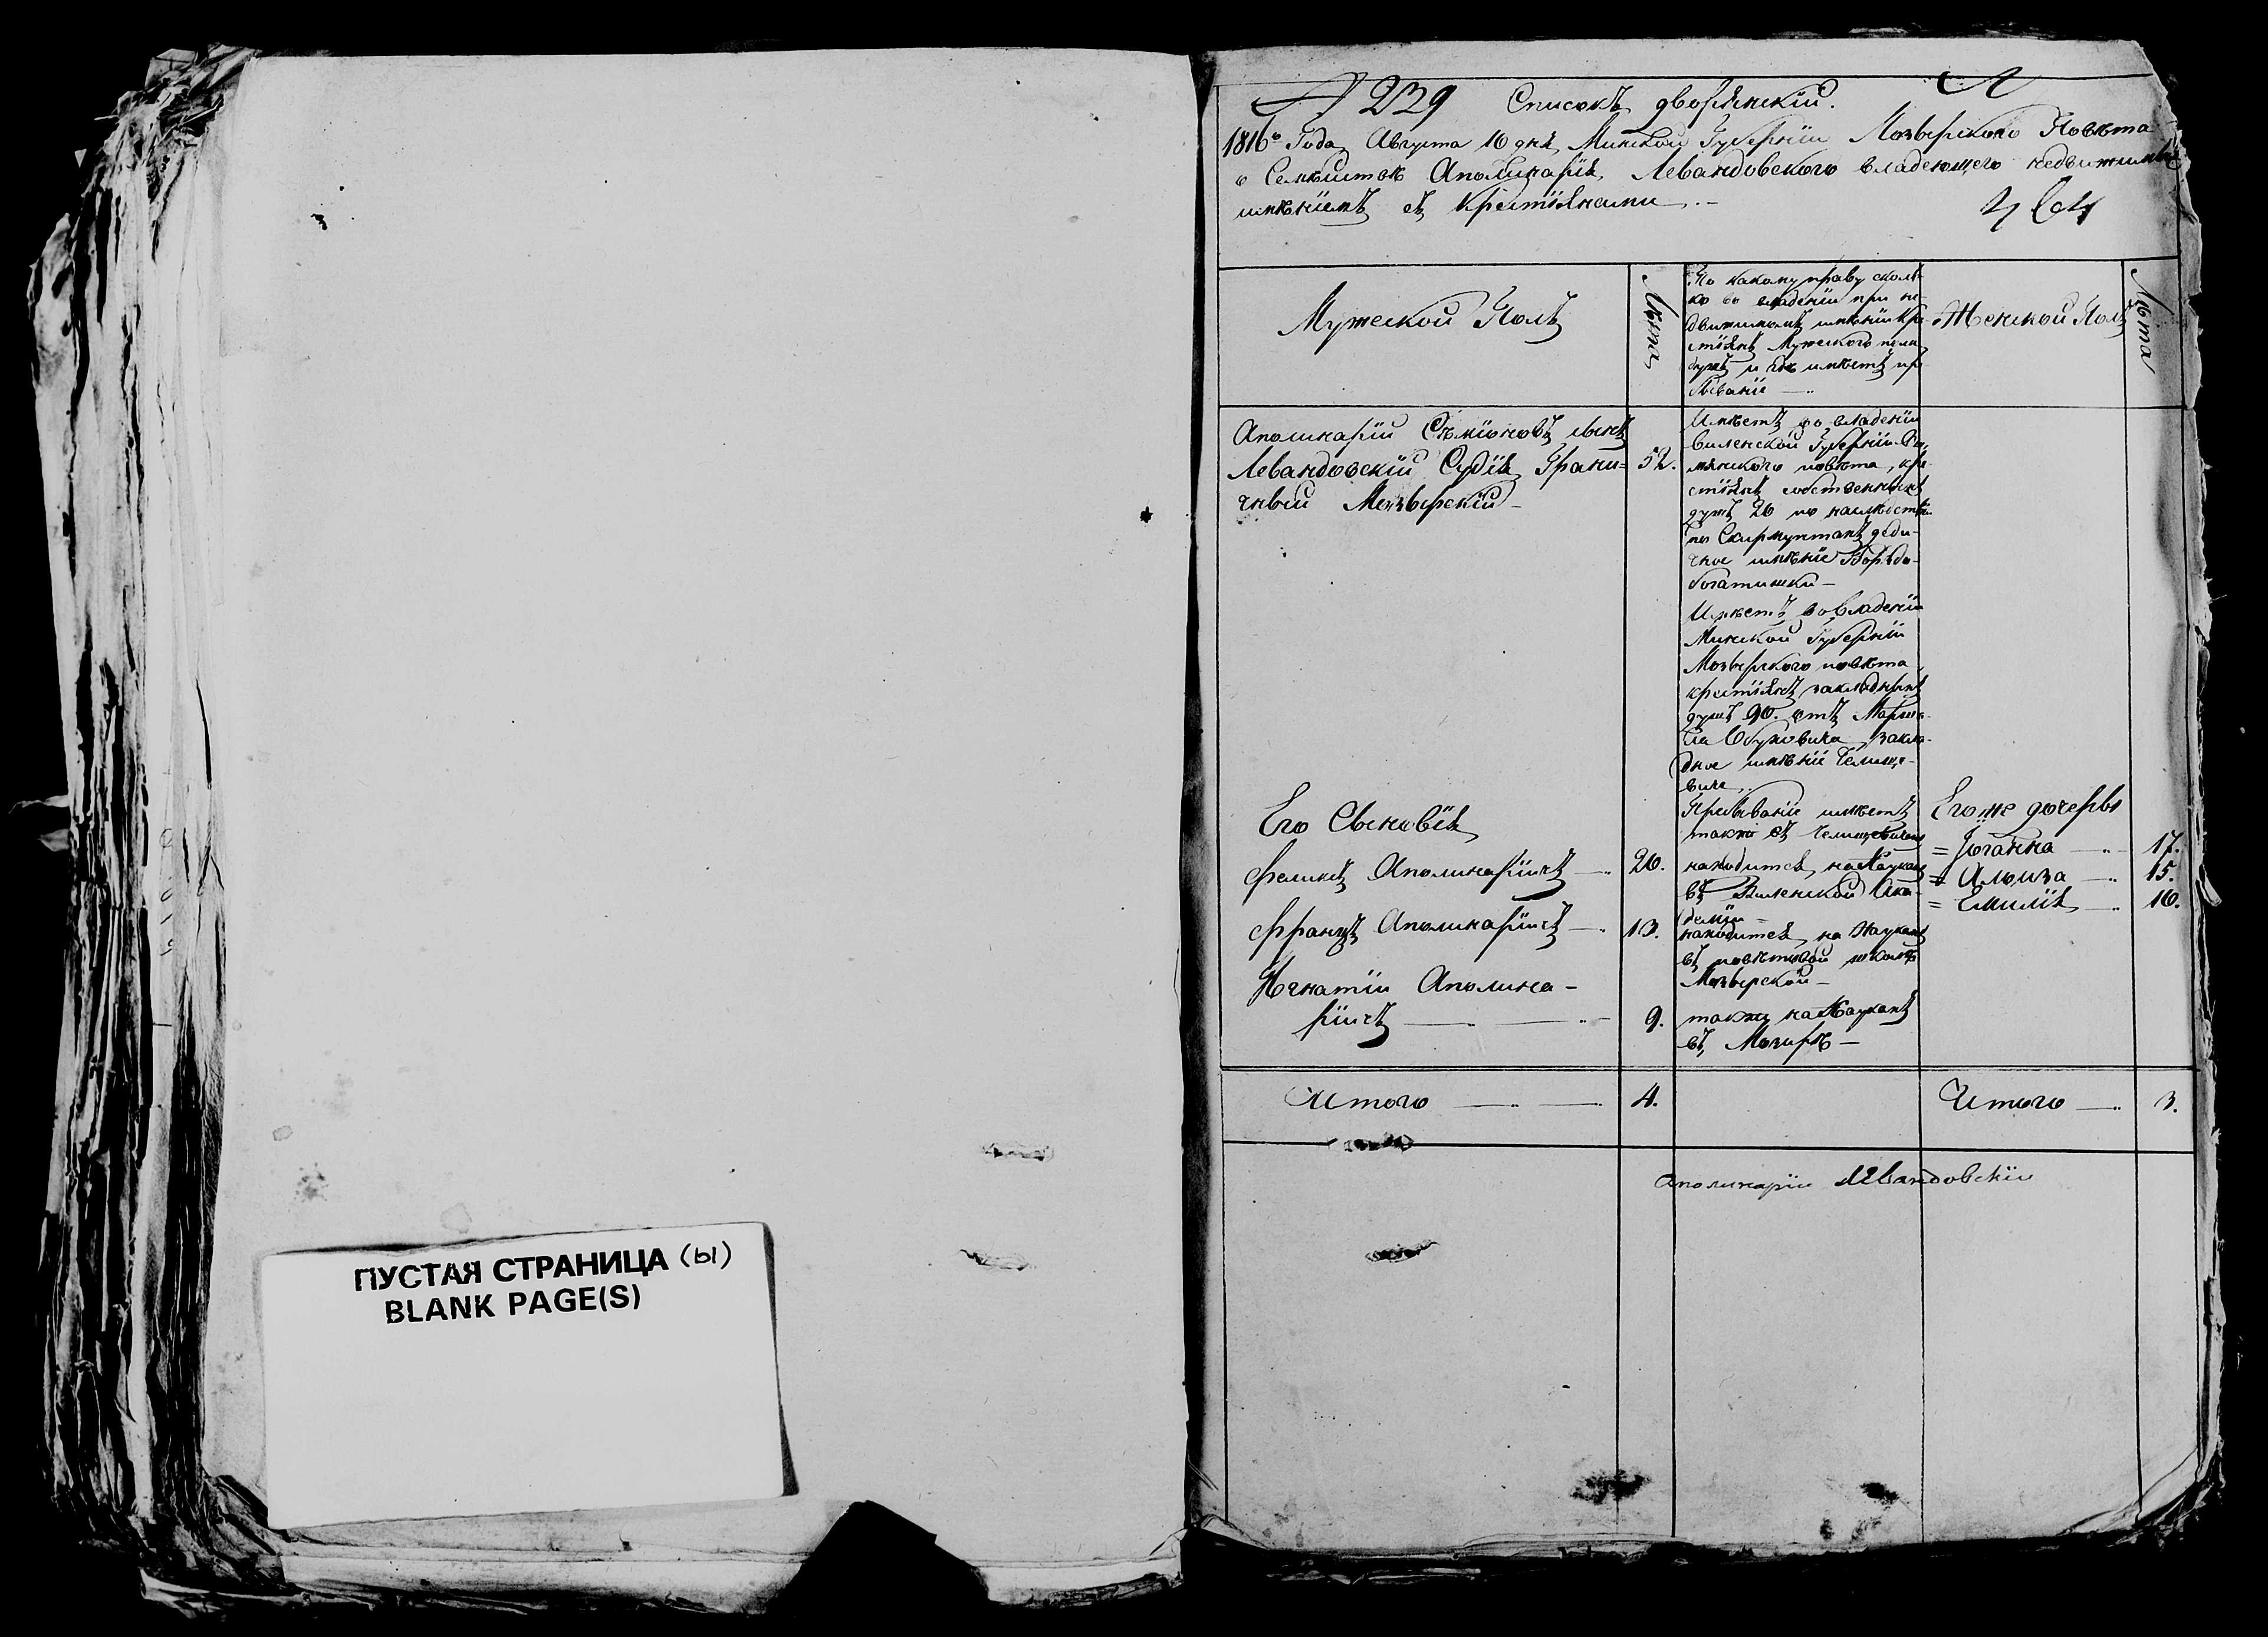 ПУСТАЯ СТРАНИЦА (ы)
BLANK PAGE(S)
239 Списокъ дворянскій.
1816го Года Августа 16 дня Минской Губерніи Мозырского Повѣта
о Аполинарія Левандовского владеющего недвижимымъ
имѣніемъ съ Крестіянами.-
Мужеской Полъ
Лѣта
По какому праву сколь-
ко во владеніи при не-
движимомъ имѣніи кре-
стіянъ Мужеского пола
душъ и где имѣетъ пре-
бываніе —
Женской Полъ
Лѣта
Аполинарій Сѣміоновъ сынъ
Левандовскій Судія Грани=
чный Мозырскій-
52.
Имѣетъ во владеніи
Виленской Губерніи
повѣта, кре-
стіянъ собственныхъ
душъ 26 по
по Скирмунтахъ деди-
чное имѣніе
богатишки-
Имѣетъ во владеніи
Минской Губерніи
Мозырского повѣта
крестіянъ закладныхъ
душъ 90. отъ Марша-
ла закла-
дное имѣніе Челище-
вичи.
Пребываніе имѣетъ
такжо въ Челищевичахъ
Его Сыновія
Феликсъ Аполинаріичъ —
26.
находится на Наукахъ
въ Виленской Ака-
деміи =
Францъ Аполинаріичъ —
13.
находится на Наукахъ
въ повѣтовой школѣ
Мозырской-
Игнатіи Аполина-
ріичъ — —
9.
такжо на Наукахъ
въ Мозирѣ —
Его же дочеры
= Іоганна — 17.
= Алоиза — 15.
= Емилія — 10.
Итого — — 4.
Итого — 3.
Аполинаріи Левандовскіи